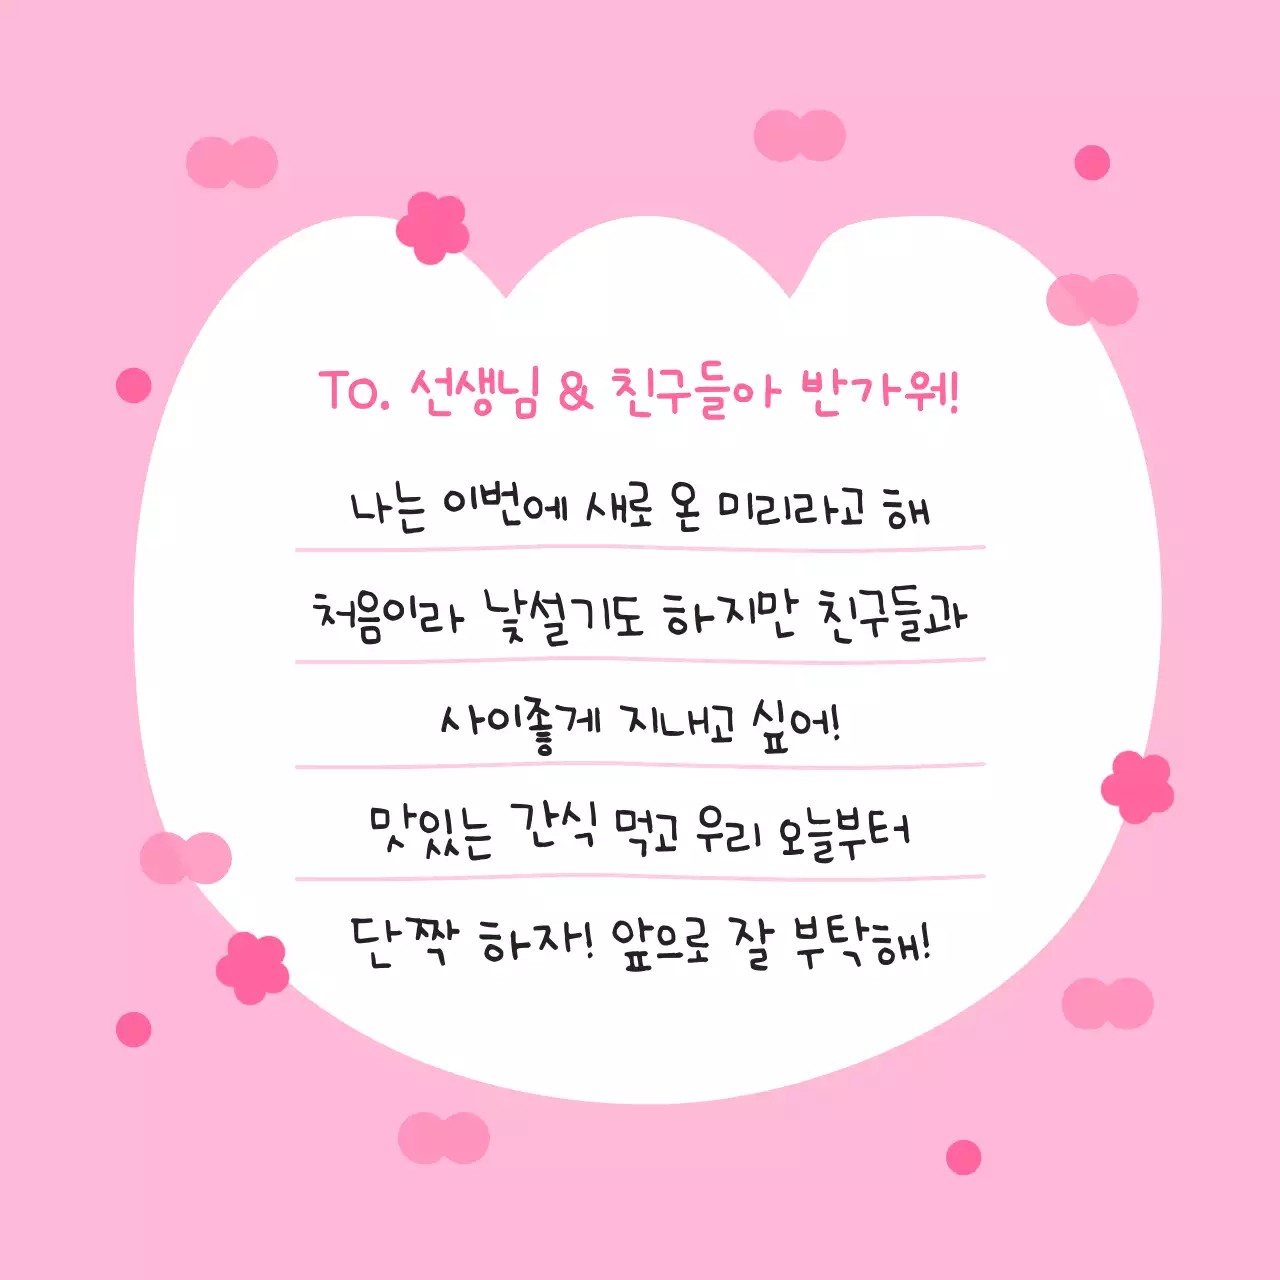 To. 선생님 & 친구들아 반가워!
나는 이번에 새로 온 미리라고 해
처음이라 낯설기도 하지만 친구들과
사이좋게 지내고 싶어!
맛있는 간식 먹고 우리 오늘부터
단짝 하자! 앞으로 잘 부탁해!